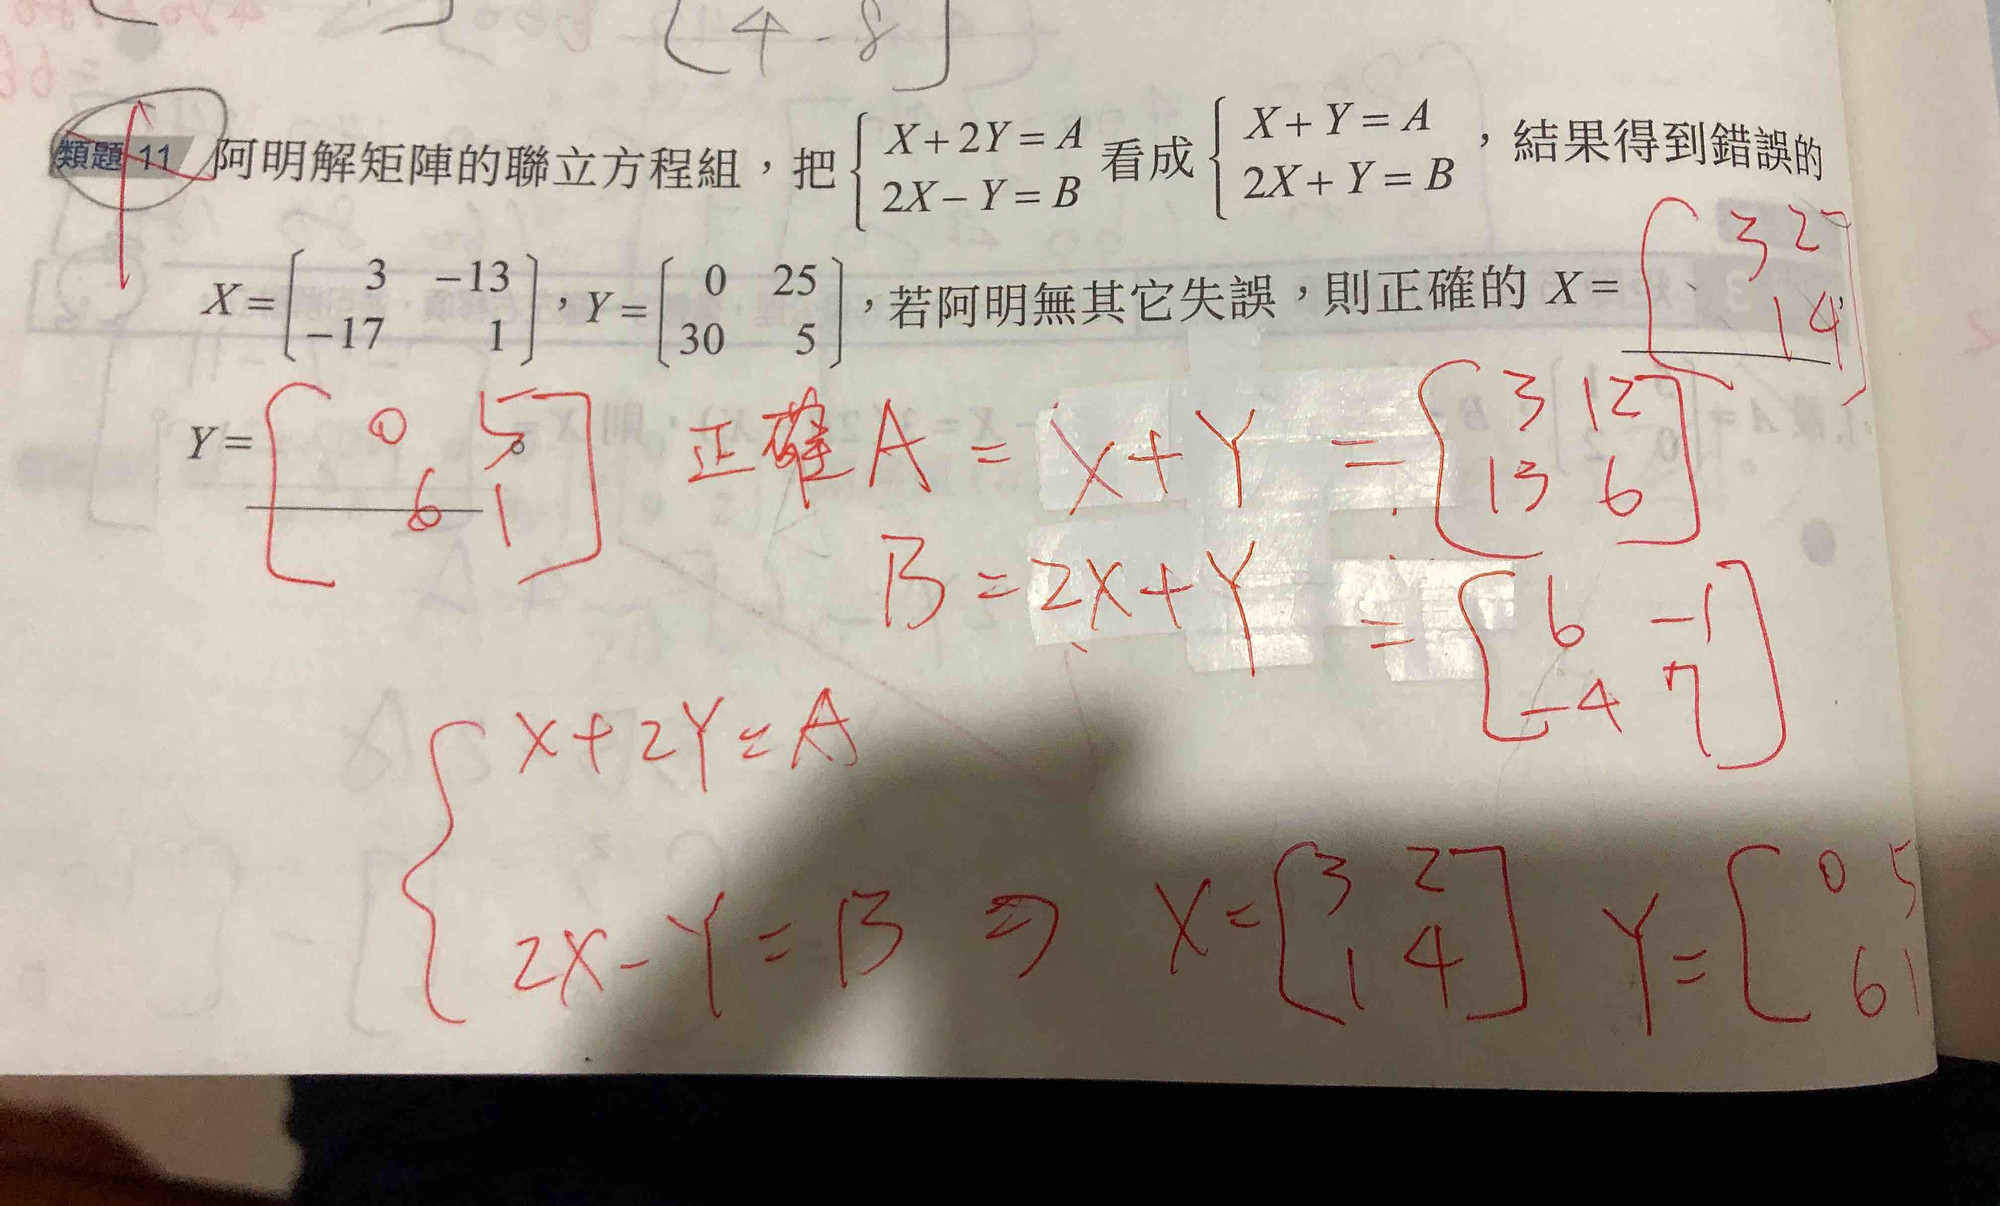 [4 -8]
類題 11 阿明解矩陣的聯立方程組，把 { X + 2Y = A 2X − Y = B 看成 { X + Y = A 2X + Y = B ，結果得到錯誤的
X = [ 3 −13 −17 1 ]，Y = [ 0 25 30 5 ]，若阿明無其它失誤，則正確的 X = [ 3 2 1 4 ]，
Y = [ 0 5 6 1 ]。
正確 A = X + Y = [ 3 12 13 6 ]
B = 2X + Y = [ 6 -1 -4 7 ]
{ X + 2Y = A
2X - Y = B ⇒ X = [ 3 2 1 4 ] Y = [ 0 5 6 1